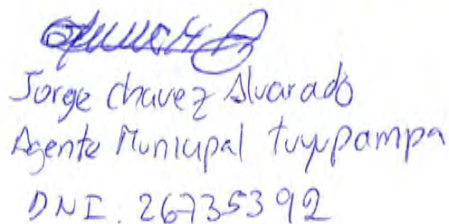 Jorge Chavez Alvarado
Agente Municipal tuyupampa
DNI. 26735392